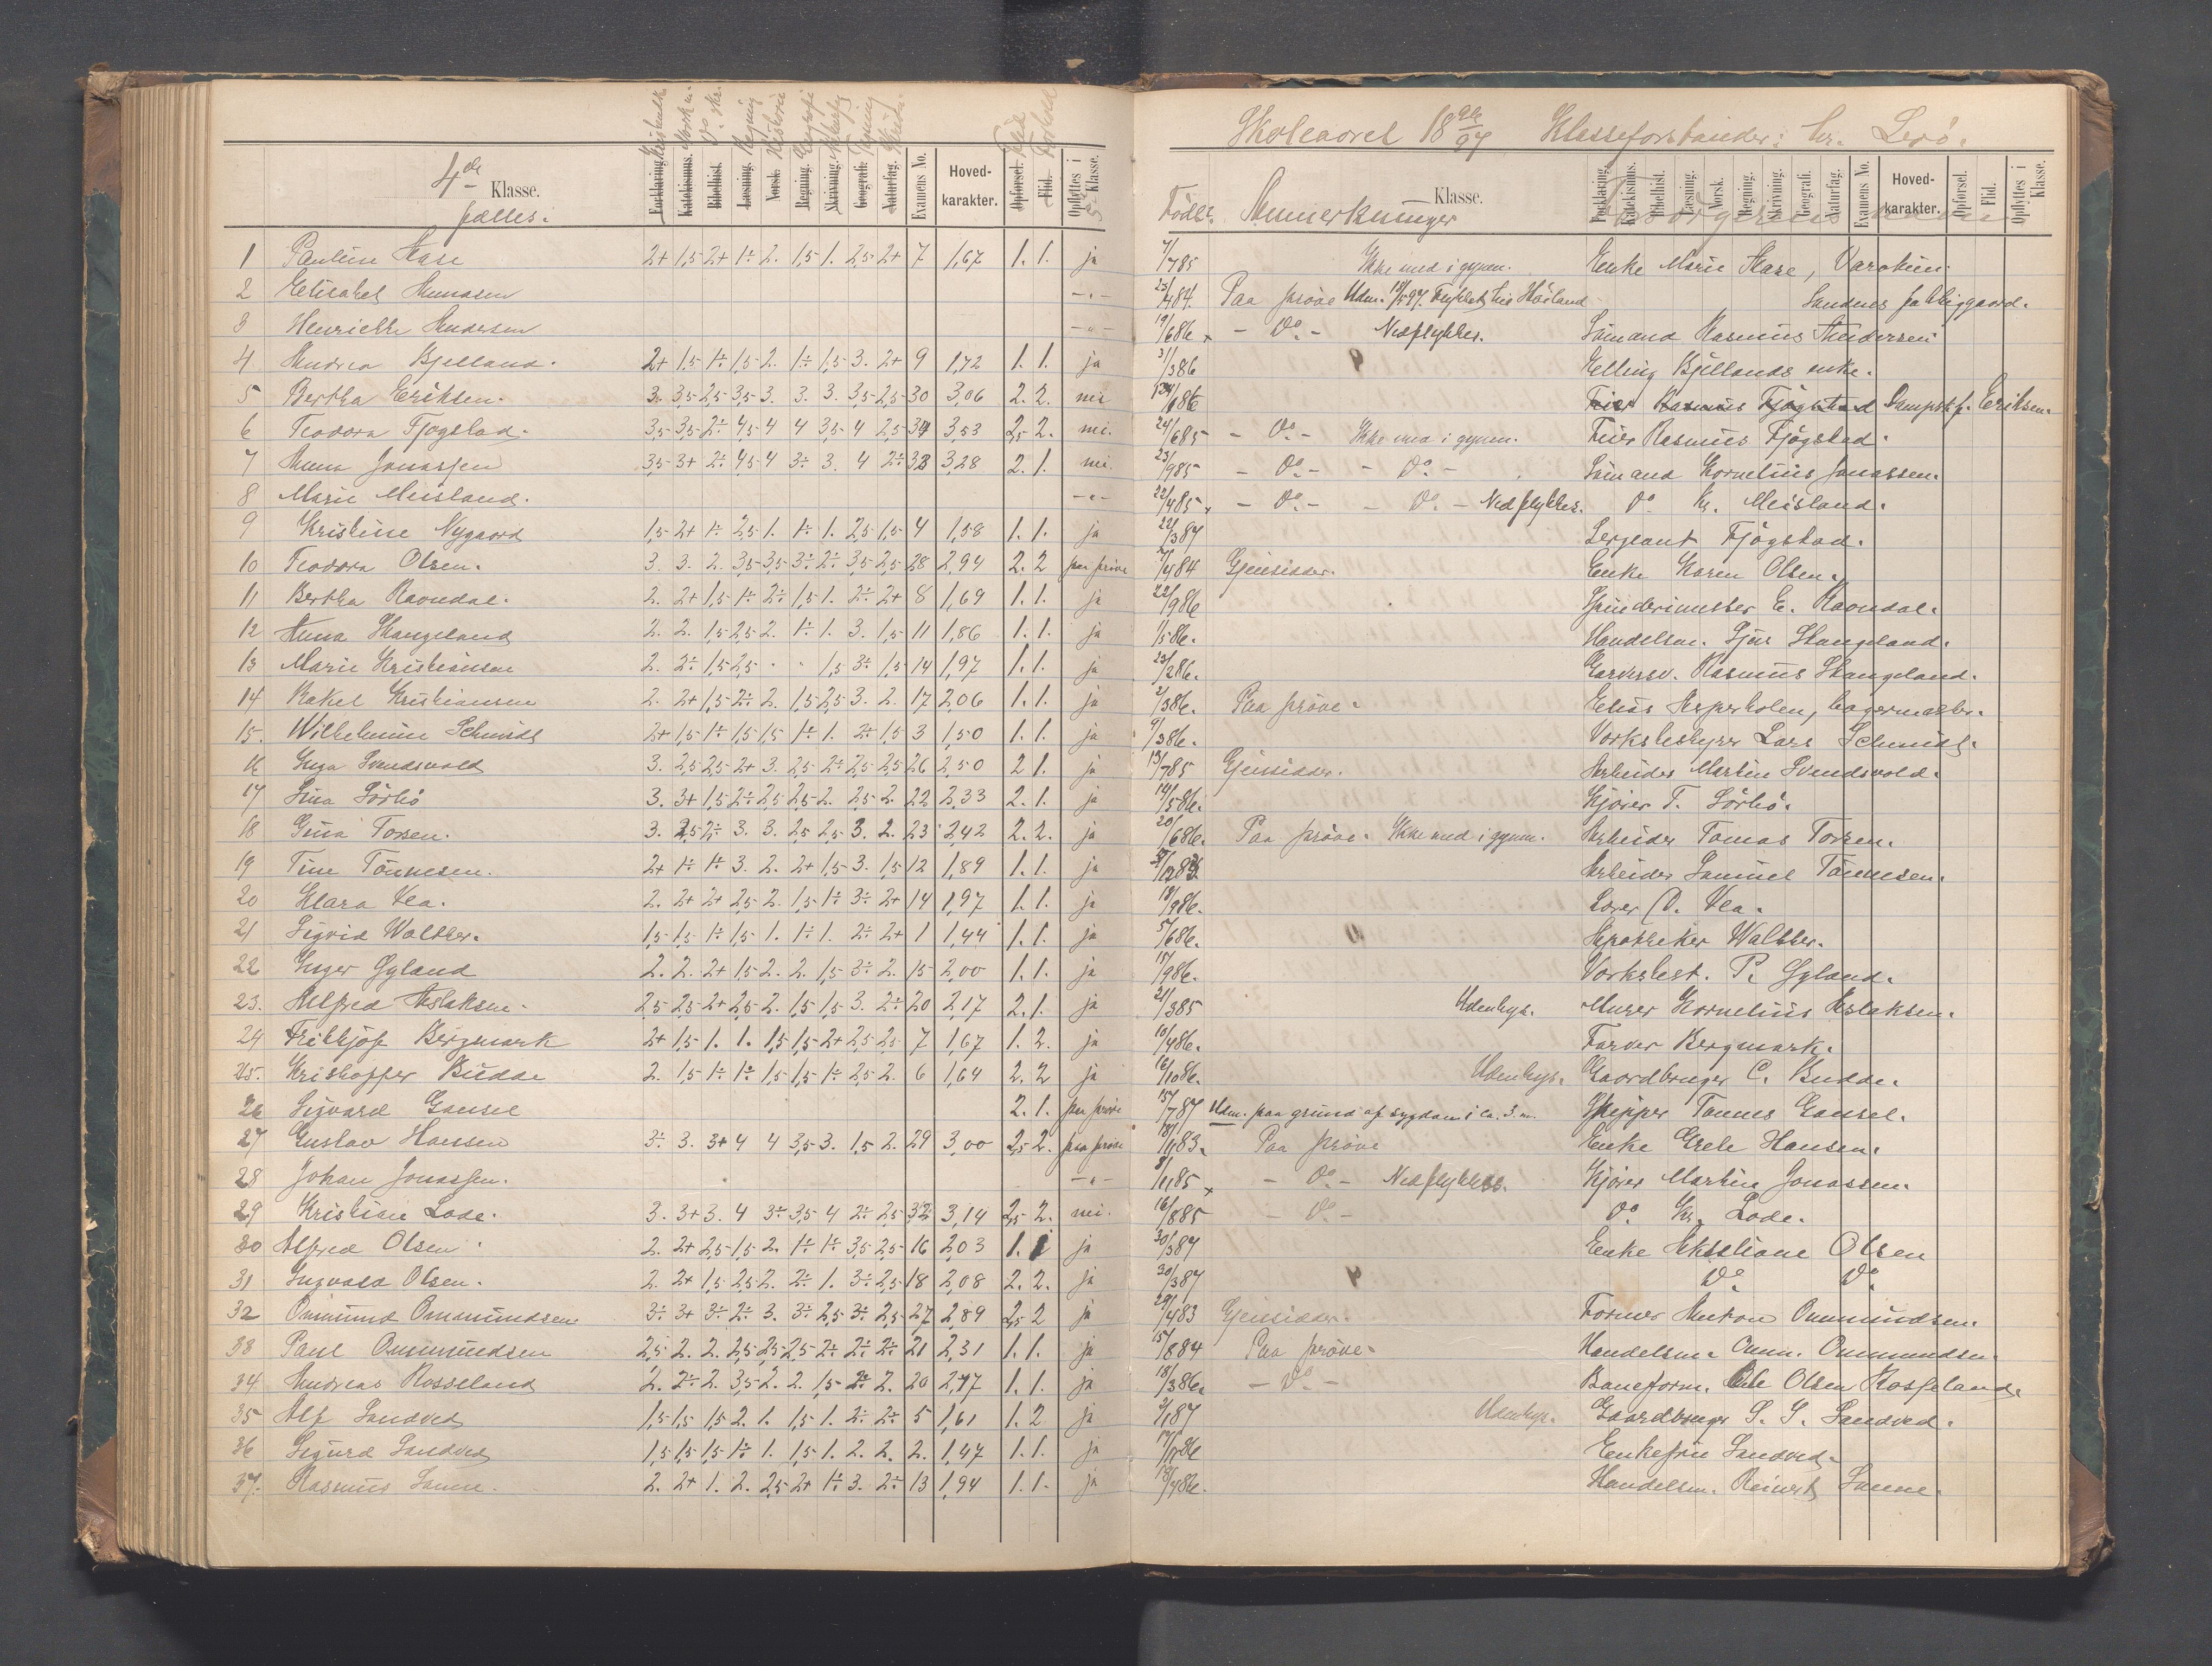 4de Klasse.
fælles.
Forklaring. Katekismus. Bibelhist. Læsning. Norsk. Regning. Skrivning. Geografi. Naturfag. Examens No. Hoved-karakter. Opførsel. Flid. Opflyttes i 5 Klasse.
1 Pauline Aase 2+ 1,5 2+ 1÷ 2. 1,5 1. 2,5 2+ 7 1,67 1. 1. ja
2 Elisabet Amundsen -"-
3 Henriette Andersen -"-
4 Andrea Bjelland. 2+ 1,5 1÷ 1,5 2. 1÷ 1,5 3. 2+ 9 1,72 1. 1. ja
5 Bertha Eriksen. 3. 3,5 2,5 3,5 3. 3. 3. 3,5 2,5 30 3,06 2. 2. nei
6 Teodora Fjogstad. 3,5 3,5 2÷ 4,5 4 4 3,5 4 2,5 34 3,53 2,5 2. nei.
7 Anna Jonassen 3,5 3+ 2÷ 4,5 4 3÷ 3. 4 2÷ 33 3,28 2. 1. nei.
8 Marie Meisland. -"-
9 Kristine Nygaard 1,5 2+ 1÷ 2,5 1. 1÷ 1. 2,5 1,5 4 1,58 1. 1. ja
10 Teodora Olsen. 3. 3. 2. 3,5 3,5 3÷ 2÷ 3,5 2,5 28 2,94 2. 2 paa prøve
11 Bertha Ravndal. 2. 2+ 1,5 1÷ 2÷ 1,5 1. 2÷ 2+ 8 1,69 1. 1. ja
12 Anna Skangeland 2. 2. 1,5 2,5 2. 1÷ 1. 3. 1,5 11 1,86 1. 1. ja
13 Marie Kristiansen 2. 2÷ 1,5 2,5 . . 1,5 3÷ 1,5 14 1,97 1. 1. ja
14 Rakel Kristiansen 2. 2+ 1,5 2÷ 2. 1,5 2,5 3. 2. 17 2,06 1. 1. ja
15. Wilhelmine Schmidt 2+ 1,5 1÷ 1,5 1,5 1÷ 1. 2÷ 1,5 3 1,50 1. 1. ja
16 Inga Svendsvold 3. 2,5 2,5 2+ 3. 2,5 2÷ 2,5 2,5 26 2,50 2 1. ja
17 Sina Sørbø 3. 3+ 1,5 2÷ 2,5 2,5 2. 2,5 2. 22 2,33 2. 1. ja
18 Gina Torsen. 3. 2,5 2÷ 3. 3. 2,5 2,5 3. 2. 23 2,42 2. 2. ja
19 Tine Tønnesen. 2+ 1÷ 1÷ 3. 2. 2+ 1,5 3. 1,5 12 1,89 1. 1. ja
20 Klara Vea. 2. 2+ 2+ 2,5 2. 1,5 1÷ 3÷ 2+ 14 1,97 1. 1. ja
21 Sigrid Walther. 1,5 1,5 1÷ 1,5 1. 1÷ 1. 2÷ 2+ 1 1,44 1. 1. ja
22 Inger Gyland 2. 2. 2+ 1,5 2. 2. 1,5 3÷ 2. 15 2,00 1. 1. ja
23. Alfred Aslaksen. 2,5 2,5 2+ 2,5 2. 1,5 1,5 3. 2÷ 20 2,17 2. 1. ja
24 Frithjof Bergmark 2+ 1,5 1. 1. 1,5 1,5 2+ 2,5 2,5 7 1,67 1. 2. ja
25. Kristoffer Budde 2. 1,5 1÷ 1÷ 1,5 1,5 1÷ 2,5 2. 6 1,64 2. 2 ja
26 Sigvard Gausel 2. 1. paa prøve
27 Gustav Hansen 3÷ 3. 3+ 4 4 3,5 3. 1,5 2. 29 3,00 2,5 2. paa prøve
28 Johan Jonassen. -"-
29 Kristian Lode. 3. 3+ 3. 4 3÷ 3,5 4 2÷ 2,5 32 3,14 2,5 2. nei.
30 Alfred Olsen 2. 2+ 2,5 1,5 2. 1÷ 1÷ 3,5 2,5 16 2,03 1. 1 ja
31 Ingvald Olsen. 2. 2+ 1,5 2,5 2. 2÷ 1. 3÷ 2,5 18 2,08 2. 2. ja
32 Ommund Ommundsen 3÷ 3+ 3÷ 2÷ 3. 3÷ 2,5 3÷ 2,5 27 2,89 2,5 2 ja
33 Paul Ommundsen 2,5 2. 2. 2,5 2,5 2,5 2÷ 2÷ 2÷ 21 2,31 1. 1. ja
34 Andreas Rosseland 2. 2÷ 2. 3,5 2. 2. 1,5 2÷ 2. 20 2,17 1. 1. ja
35 Alf Sandved 1,5 1,5 1,5 2. 1. 1,5 1. 2÷ 2÷ 5 1,61 1. 2 ja
36 Sigurd Sandved 1,5 1,5 1,5 1÷ 1. 1,5 1. 2. 2. 2. 1,47 1. 1. ja
37. Rasmus Sanne. 2. 2+ 1. 2. 2,5 2+ 1÷ 3. 2÷ 13 1,94 1. 1. ja
Skoleaaret 1896/97 Klasseforstander: hr. Lerø.
Født. Anmerkninger Klasse. Forklaring. Katekismus. Bibelhist. Læsning. Norsk. Regning. Skrivning. Geografi. Naturfag. Examens No. Hoved-karakter. Opførsel. Flid. Opflyttes i Klasse.
Forsørgerens navn
7/785 Ikke med i gymn. Enke Marie Aase,
23/484. Paa prøve Udm. Sandnes fattiggaard.
19/686 x - Do - Nedflyttes. Sømand Rasmus Andersen
31/386 Elling Bjellands enke.
Feier Rasmus Fjogstad Dampskf. Eriksen.
24/685 - Do - Ikke med i gymn. Feier Rasmus Fjøgstad.
23/985 - Do - - Do - Sømand Kornelius Jonassen.
22/485 x - Do - - Do - Nedflyttes. Do Kr. Meisland.
22/387 Sergeant Fjøgstad.
7/484 Gjensidder. Enke Karen Olsen.
22/986 Spinderimester E. Ravndal.
1/586. Handelsm. Sjur Skangeland.
23/286. Garversv. Rasmus Skangeland.
2/386. Paa prøve. Elias Asperholen, bagermester.
9/386. Vorkstestyrer Lars Schmidt.
13/785 Gjensidder. Arbeider Martin Svendsvold.
14/586. Kjører T. Sørbø.
20/686. Paa prøve. Ikke med i gymn. Arbeider Tomas Torsen.
Arbeider Samuel Tønnesen.
18/986. Lærer O. Vea.
5/686. Apotheker Walther.
15/986. Vorkstest. P. Gyland.
21/385 Udenbys. Murer Kornelius Aslaksen.
10/486. Farver Bergmark.
16/1086. Udenbys. Gaardbruger C. Budde.
15/787 Udm. paa grund af sygdom i ca. 3. m. Skipper Tønnes Gausel.
18/1183. Paa prøve Enke Grete Hansen.
8/1185 x - Do - Nedflyttes. Kjører Martin Jonassen.
16/885 - Do - Do Kr. Lode.
30/387 Enke Akseliane Olsen
30/387 Do Do
29/483 Gjensidder. Former Anton Ommundsen.
15/884 Paa prøve. Handelsm. Omm. Ommundsen.
18/386. - Do - Baneform. Ole Olsen Rosseland.
2/187 Udenbys. Gaardbruger S. S. Sandved.
Enkefru Sandved.
18/486. Handelsm. Reinert Sanne.